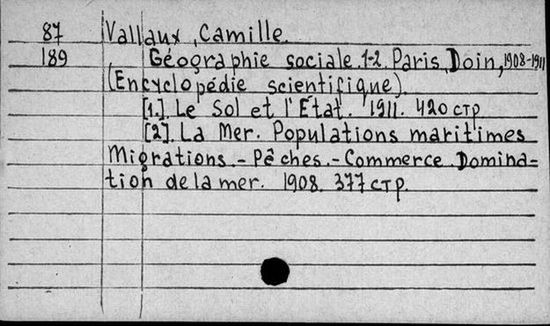 87 Vallaux, Camille.
189 Géographie sociale 1-2. Paris, Doin, 1908-1911
(Encyclopédie scientifique).
[1.]. Le Sol et l'État. 1911. 420 стр
[2]. La Mer. Populations maritimes
Migrations - Pêches. - Commerce. Domina=
tion de la mer. 1908. 377 стр.